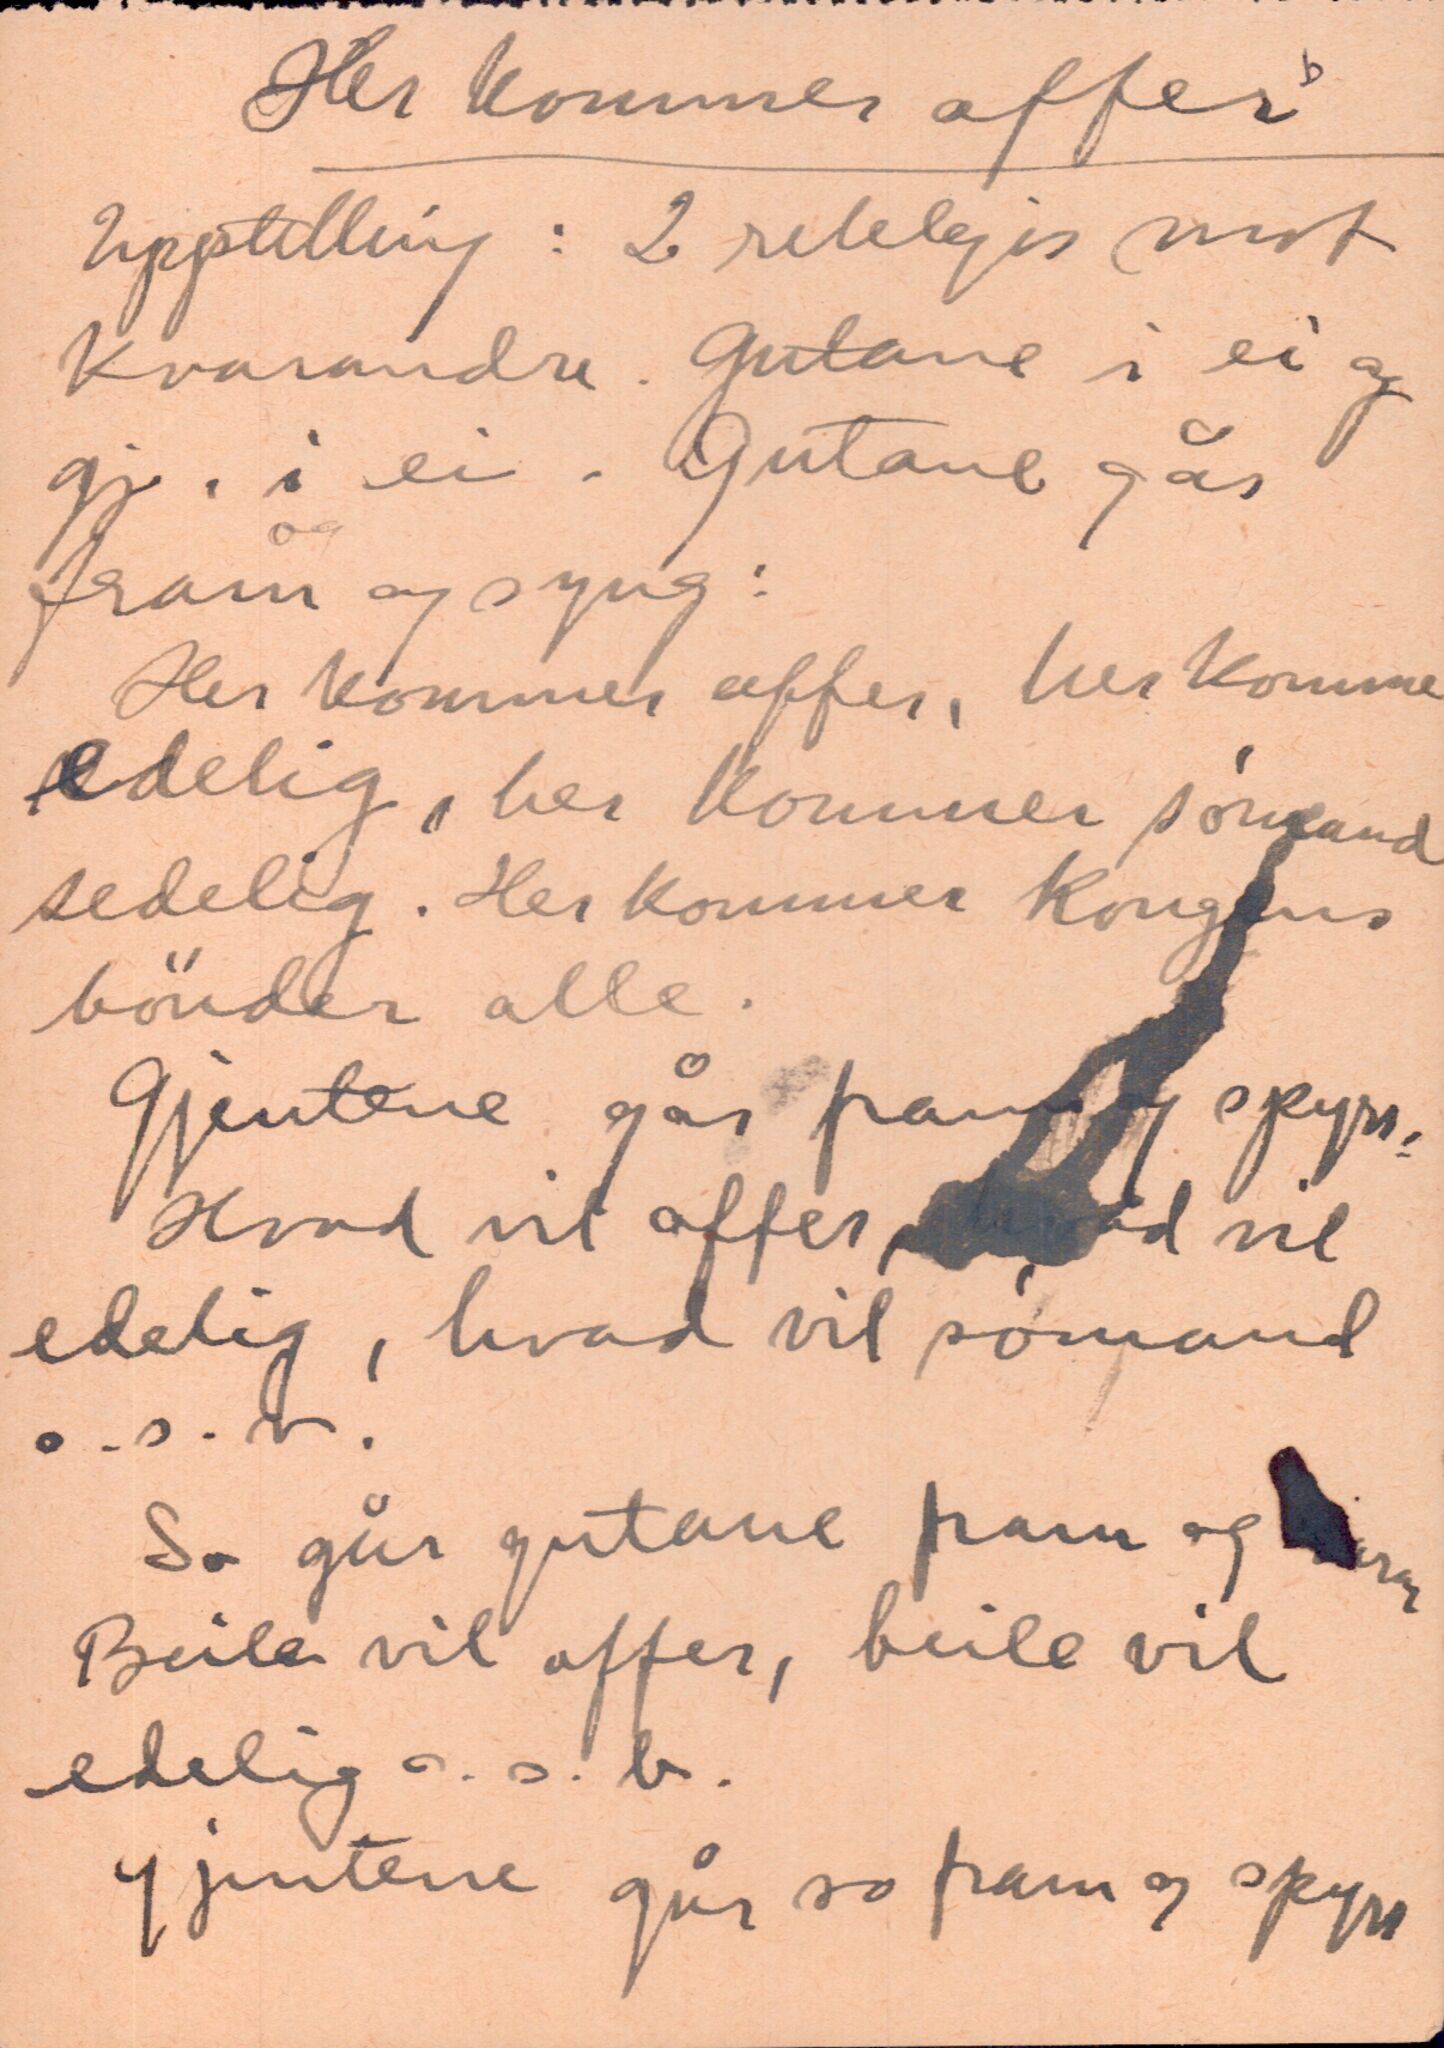 Her kommer offer b
Uppstilling: 2 rekkjer mot
kvarandre. Gutane i ei og
gj. i ei. Gutane går
og
fram og syng:
Her kommer offer, her komme
edelig, her kommer sömand
sedelig. Her kommer kongens
bönder alle.
Gjentene går fram og spyrr:
Hvad vil offer, hvad vil
edelig, hvad vil sömand
o.s.v.
So går gutane fram og
Beile vil offer, beile vil
edelig o.s.v.
Gjentene går so fram og spyrr